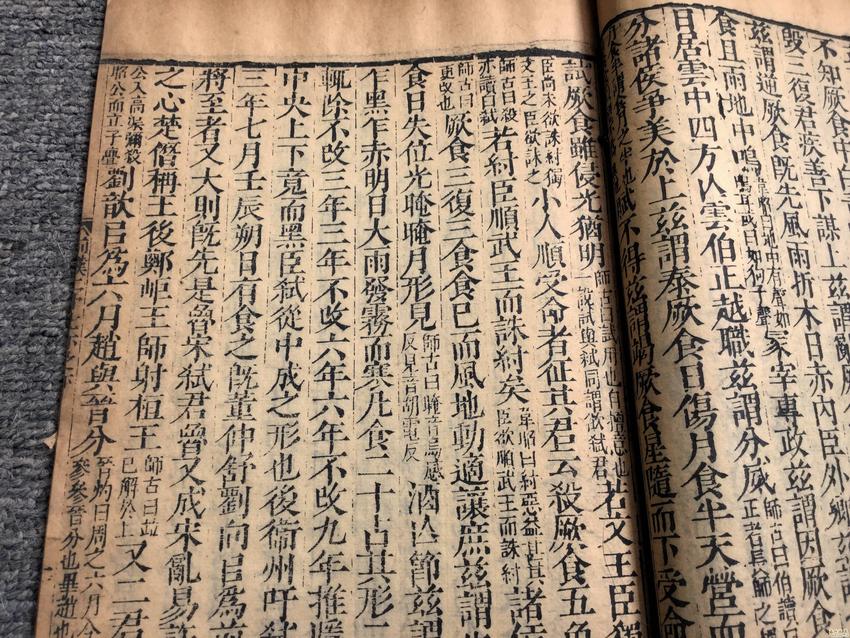 不知厥食中白青
毀二復君疾善下謀上茲謂亂厥
茲謂逆厥食既先風雨折木日赤內臣外鄉茲
食且雨地中鳴韋昭曰地中有聲如鳴耳或曰如狗子聲冢宰專政茲謂因厥食
日居雲中四方亾雲伯正越職茲謂分威師古曰伯讀正者長帥之
分諸侯爭美於上茲謂泰厥食日傷月食半天營而
弒不得茲謂竭厥食星隨而下受命
試厥食雖侵光猶明師古曰試用也自擅意也一說試與弒同謂欲弒君若文王臣獨
臣尚未欲誅紂獨文王之臣欲誅之小人順受命者征其君云殺厥食五色
師古曰殺亦讀曰弒若紂臣順武王而誅紂矣韋昭曰紂惡益甚其臣欲順武王而誅紂諸侯
師古曰更改也厥食三復三食食已而風地動適讓庶茲謂
食日失位光晻晻月形見師古曰晻音烏感反見音胡電反酒亾節茲謂
乍黑乍赤明日大雨發霧而寒凡食二十占其形二
輒除不改三年三年不改六年六年不改九年推
中央上下竟而黑臣弒從中成之形也後衞州吁弒
三年七月壬辰朔日有食之旣董仲舒劉向㠯爲前
將至者又大則旣先是魯宋弒君魯又成宋亂易許
之心楚僭稱王後鄭岠王師射桓王師古曰竝已解於上又二君
公入高渠彌殺昭公而立子亹劉歆㠯爲六月趙與晉分晉灼曰周之六月今參參晉分也畢趙也